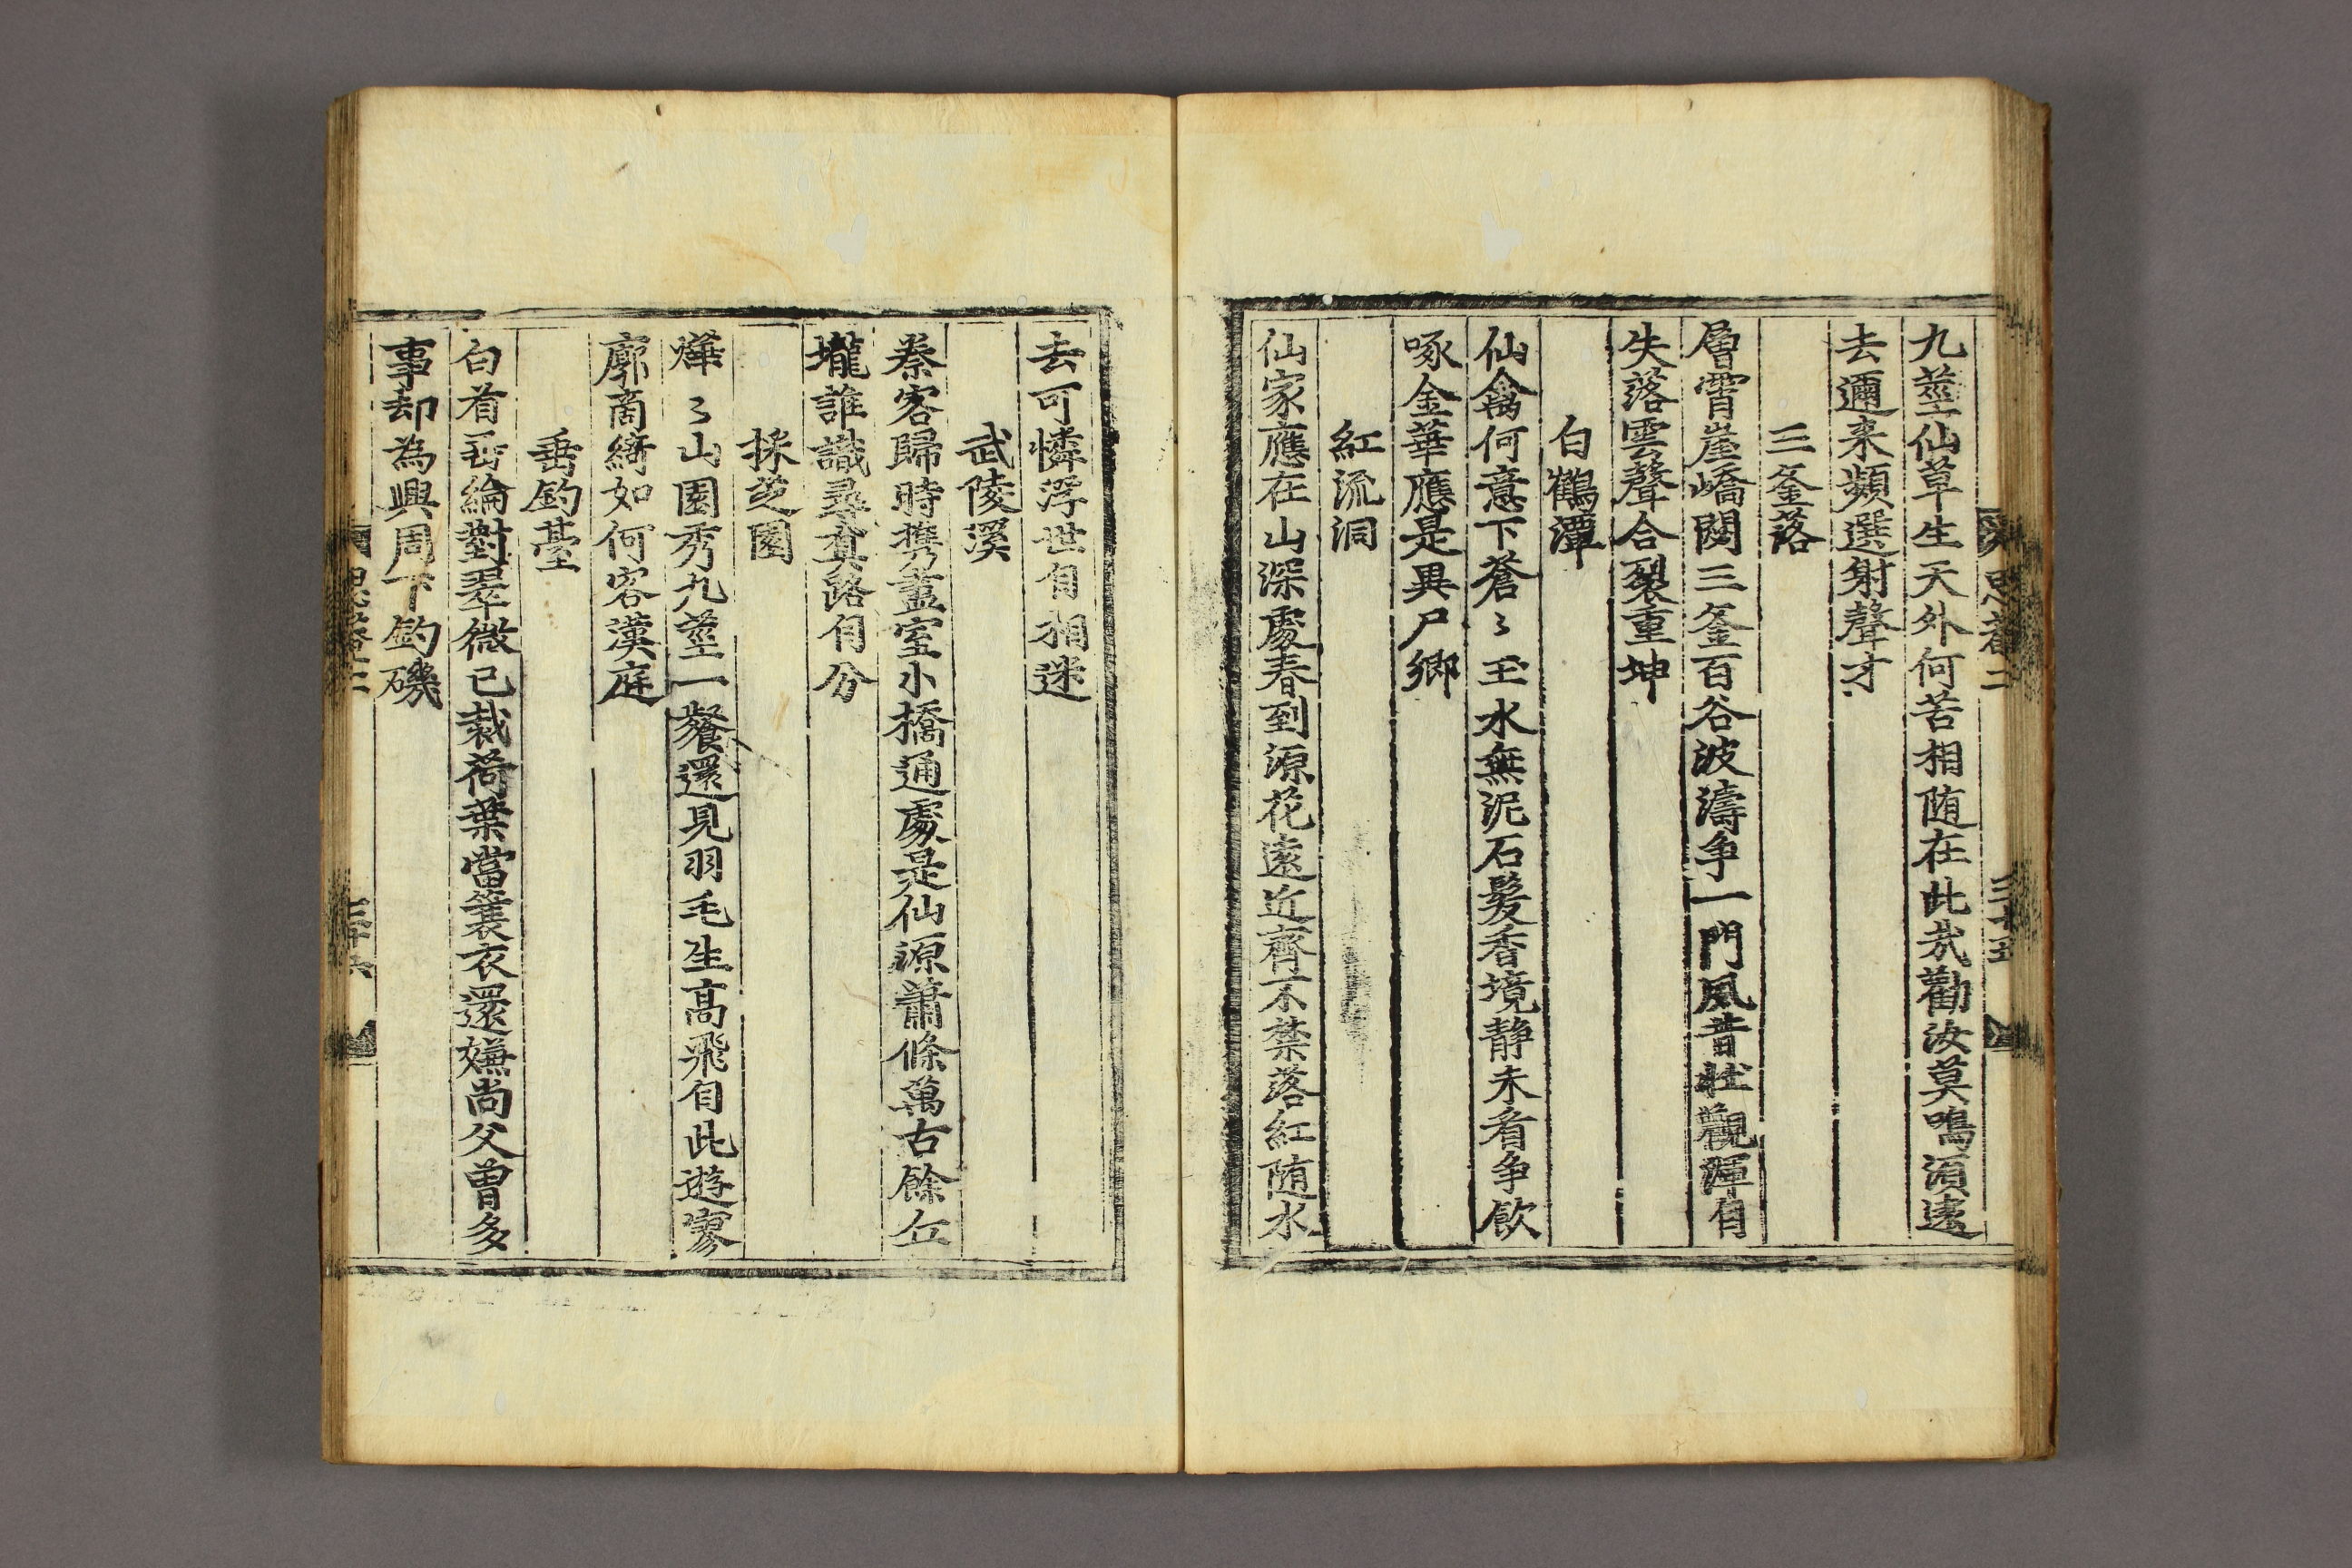 九莖仙草生天外何苦相随在此㢤勸汝莫鳴湏遠
去邇来頻選射聲才
三釜落
層霄崖嶠闊三釜百谷波濤争一門風昔壯觀渾自
失落雲聲合裂重坤
白鶴潭
仙禽何意下蒼〻玉水無泥石髮香境静未看争飲
啄金華應是異尸鄉
紅流洞
仙家應在山深處春到源花遠近齊不禁落紅随水
去可憐浮世自相迷
武陵溪
秦客歸時携盡室小橋通處是仙源蕭條萬古餘丘
壠誰識尋真路自分
採芝園
燁〻山園秀九莖一餐還見羽毛生高飛自此遊寥
廓商綺如何客漢庭
垂釣臺
白首垂綸對翠微已裁荷葉當簑衣還嫌尚父曾多
事却為興周下釣磯